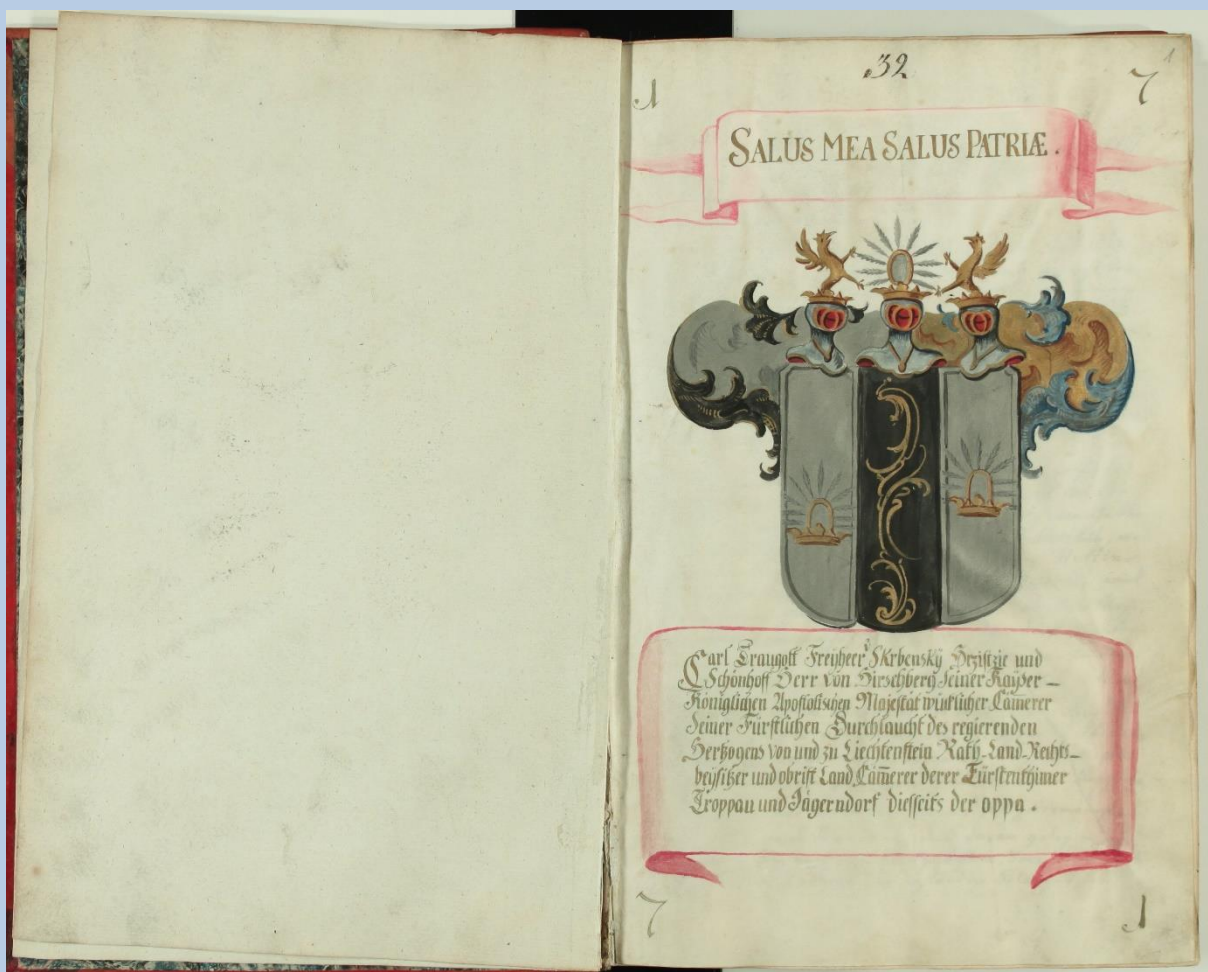 32
1
1 7
SALUS MEA SALUS PATRIÆ.
Carl Traugott Freyherr Skrbenskÿ Hrzistzie und
Schönhoff Herr von Hirschberg Seiner Kaÿser-
Königlichen Apostolischen Majestät wirklicher Cam̄erer
Seiner Fürstlichen Durchlaucht des regierenden
Hertzogens von und zu Liechtenstein Rath-Land-Rechts-
beÿsitzer und obrist Land Cam̄erer derer Fürstenthümer
Troppau und Jägerndorf diesseits der oppa.
7 1